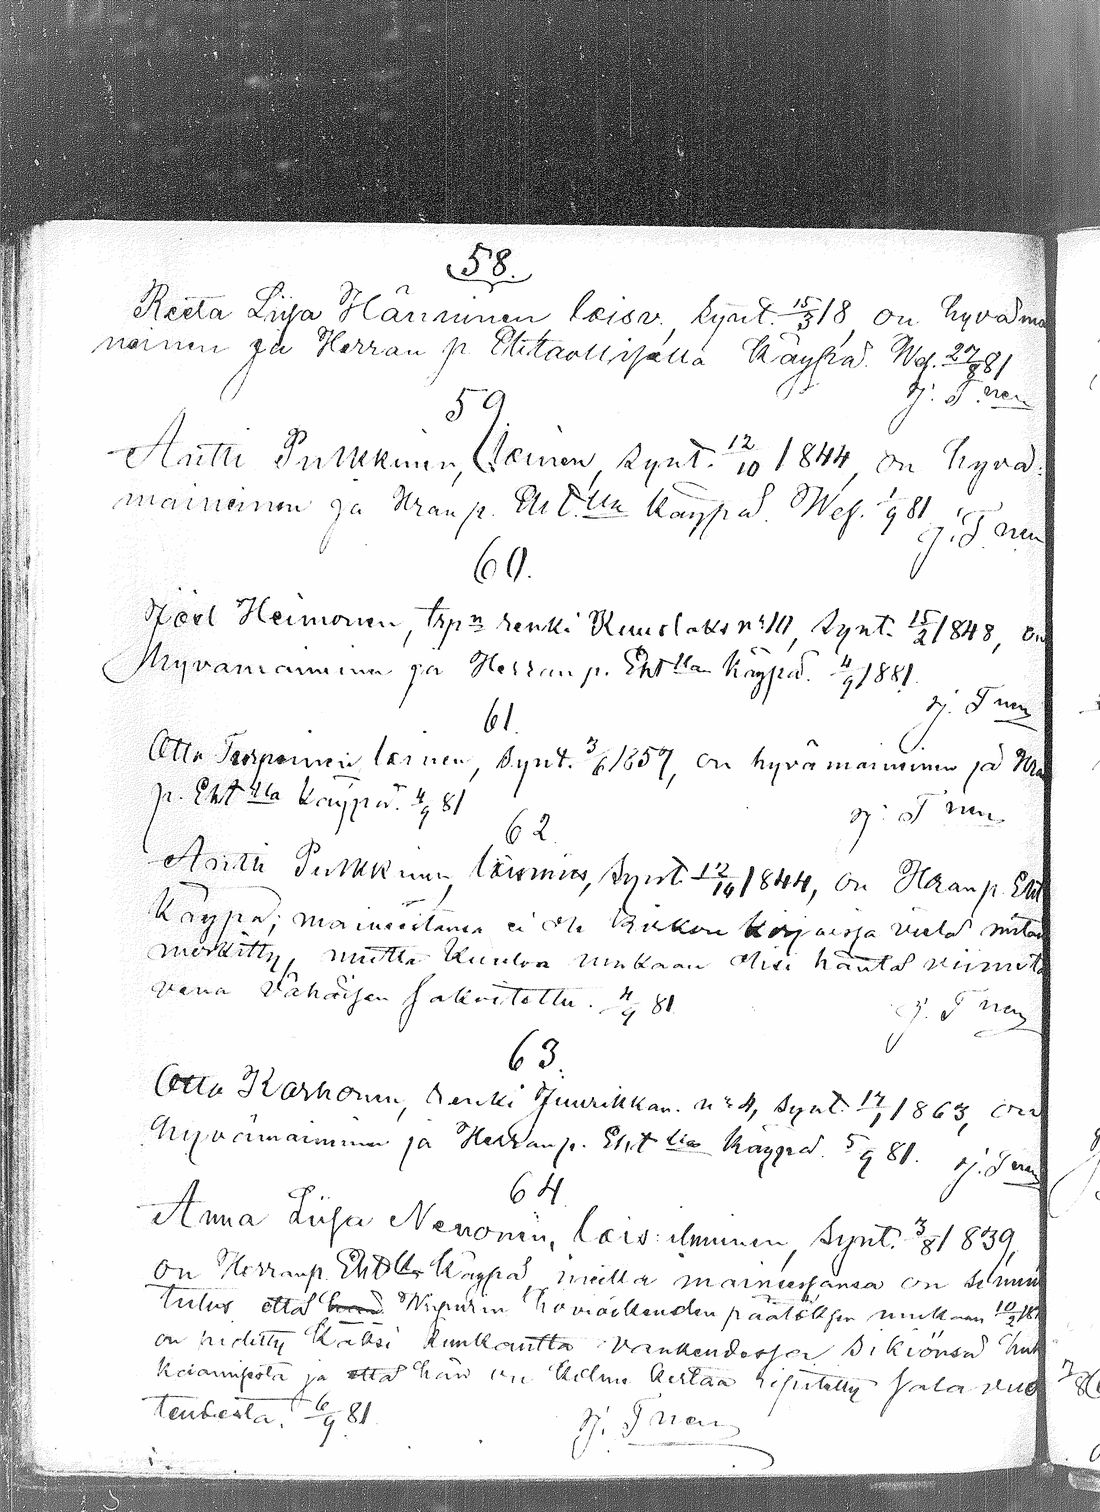 58.
Reeta Liisa Hänninen loisv., synt. 15/3 18, on hyvämai
neinen ja Herran p. Ehtoollisella käypä. Wsf. 27/8 81
Hj. T nen
59.
Antti Pulkkinen, loinen, synt. 12/10 1844, on hyvä-
maineinen ja Hran p. Eht. lla käypä. Wsf. 1/9 81
Hj. T nen
60.
Joel Heimonen, trp n renki Kuuslaks nr 10, synt. 15/2 1848, on
hyvämaininen ja Herran p. Eht lla käypä. 4/9 1881.
Hj. T nen
61.
Otto Torponinen, loinen, synt. 3/6 1857, on hyvämaininen ja Hra
p. Eht lla käypä. 4/9 81
Hj. T nen
62.
Antti Pulkkinen, loismies, synt. 12/10 1844, on Hran p. Eht
käypä; maineestansa ei ole kirkon kirjoissa vielä mitän
merkitty, mutta kuulon mukaan olisi häntä viimeis
vuna vähäisen sakoitettu. 4/9 81.
Hj. T nen
63.
Otto Karhonen, renki Juurikkan. nr 4, synt. 17/1 1863, on
hyvämaininen ja Herran p. Eht lla käypä. 5/9 81.
Hj. T nen
64.
Anna Liisa Nevonen, lois: ilminen, synt. 3/8 1839,
on Herran p. Eht lla käypä, mutta maineesjansa on se muis
tutus että Wiipurin hoviöikeuden päätöksen mukaan 10/2 18
on pidetty kaksi kuukautta vankeudessa sikiönsä huk
kaamisesta ja että hän on kolme kertaa ripitetty sala vuo
teudesta. 6/9 81.
Hj. T nen